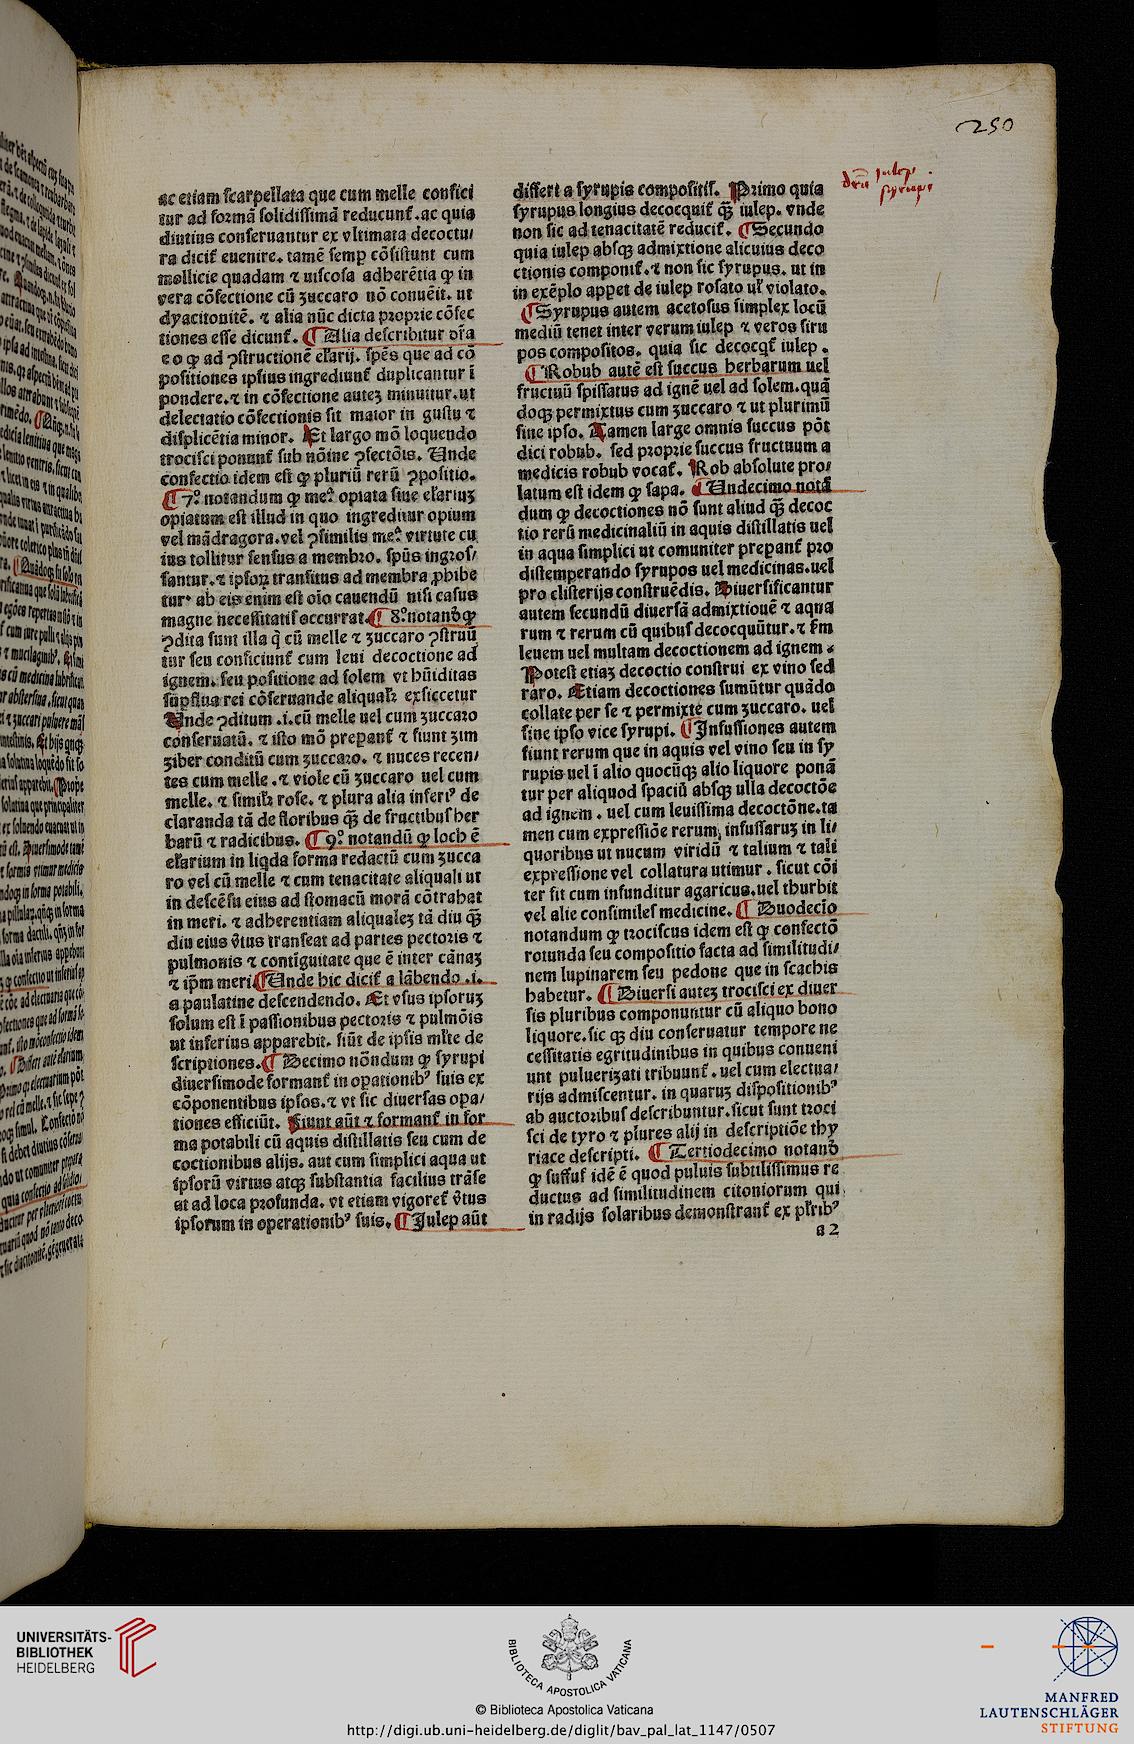 250
ac etiam scarpellata que cum melle confici
tur ad formã solidissimã reducunt̃ .ac quia
diutius conseruantur ex vltimata decoctu/
ra dicit̃ euenire. tamẽ semp cõsistunt cum
mollicie quadam ⁊ uiscosa adherẽtia ꝙ in
vera cõfectione cũ zuccaro nõ conuẽit. ut
dyacitonitẽ. ⁊ alia nũc dicta proprie cõfec
tiones esse dicunt̃. ¶ Alia describitur dr̃a
e o ꝙ ad ꝯstructionẽ elr̃arij. spẽs que ad cõ
positiones ipsius ingrediunt̃ duplicantur ĩ
pondere.⁊ in cõfectione autez minuitur.ut
delectatio cõfectionis sit maior in gustu ⁊
displicẽtia minor. Et largo mõ loquendo
trocisci ponunt̃ sub nõine ꝯfectõis. Unde
confectio idem est ꝙ pluriũ rerũ ꝯpositio.
¶ 7.º notandum ꝙ me.ª opiata siue elr̃ariuz
opiatum est illud in quo ingreditur opium
vel mãdragora.vel ꝯsimilis me.ª virtute cu
ius tollitur sensus a membro. spũs ingros/
santur.⁊ ipsoꝝ transitus ad membra ꝓhibe
tur. ab eis enim est oĩo cauendũ nisi casus
magne necessitatis occurrat.¶ 8.º notand̃ ꝙ
ꝯdita sunt illa q̃ cũ melle ⁊ zuccaro ꝯstruũ
tur seu conficiunt̃ cum leui decoctione ad
ignem. seu positione ad solem vt hũiditas
sũpflua rei cõseruande aliqualr̃ exsiccetur
Unde ꝯditum .i.cũ melle uel cum zuccaro
conseruatũ. ⁊ isto mõ prepant̃ ⁊ fiunt zim
ziber conditũ cum zuccaro. ⁊ nuces recen/
tes cum melle .⁊ viole cũ zuccaro uel cum
melle. ⁊ similr̃ rose. ⁊ plura alia inferiꝰ de
claranda tã de floribus qꝫ̃ de fructibus her
barũ ⁊ radicibus. ¶ 9.º notandũ ꝙ loch ẽ
elr̃arium in liqda forma redactũ cum zucca
ro vel cũ melle ⁊ cum tenacitate aliquali ut
in descẽsu eius ad stomacũ morã cõtrahat
in meri. ⁊ adherentiam aliqualez tã diu qꝫ̃
diu eius ṽtus transeat ad partes pectoris ⁊
pulmonis ⁊ contiguitate que ẽ inter cãnaz
⁊ ip̃m meri¶ Unde hic dicit̃ a lãbendo .i.
a paulatine descendendo. Et vsus ipsoruz
solum est ĩ passionibus pectoris ⁊ pulmõis
ut inferius apparebit. siũt de ipsis mlt̃e de
scriptiones.¶ Decimo nõndum ꝙ syrupi
diuersimode formant̃ in opationibꝰ suis ex
cõponentibus ipsos.⁊ vt sic diuersas opa/
tiones efficiũt. Fiunt aũt ⁊ formant̃ in for
ma potabili cũ aquis distillatis seu cum de
coctionibus alijs. aut cum simplici aqua ut
ipsorũ virtus atqꝫ substantia facilius trãse
at ad loca profunda. vt etiam vigoret̃ ṽtus
ipsorum in operationibꝰ suis. ¶ Julep aũt
differt a syrupis compositis. Primo quia
syrupus longius decocquit̃ qꝫ̃ iulep. vnde
non sic ad tenacitatẽ reducit̃. ¶ Secundo
quia iulep absqꝫ admixtione alicuius deco
ctionis componit̃.⁊ non sic syrupus. ut in
in exẽplo appet de iulep rosato ul̃ violato.
¶ Syrupus autem acetosus simplex locũ
mediũ tenet inter verum iulep ⁊ veros siru
pos compositos. quia sic decocqt̃ iulep .
¶ Robub autẽ est succus herbarum uel
fructuũ spissatus ad ignẽ uel ad solem.quã
doqꝫ permixtus cum zuccaro ⁊ ut plurimũ
sine ipso. Tamen large omnis succus põt
dici robub. sed proprie succus fructuum a
medicis robub vocat̃. Rob absolute pro/
latum est idem ꝙ sapa. ¶ Undecimo notã
dum ꝙ decoctiones nõ sunt aliud qꝫ̃ decoc
tio rerũ medicinaliũ in aquis distillatis uel
in aqua simplici ut comuniter prepant̃ pro
distemperando syrupos uel medicinas.uel
pro clisterijs construẽdis. Diuersificantur
autem secundũ diuersã admixtionẽ ⁊ aqua
rum ⁊ rerum cũ quibus decocquũtur.⁊ fm̃
leuem uel multam decoctionem ad ignem .
Potest etiaz decoctio construi ex vino sed
raro. Etiam decoctiones sumũtur quãdo
collate per se ⁊ permixte cum zuccaro. uel
sine ipso vice syrupi. ¶ Infussiones autem
fiunt rerum que in aquis vel vino seu in sy
rupis uel ĩ alio quocũqꝫ alio liquore ponã
tur per aliquod spaciũ absqꝫ ulla decoctõe
ad ignem . uel cum leuissima decoctõne.ta
men cum expressiõe rerum infussaruz in li/
quoribus ut nucum viridũ ⁊ talium ⁊ tali
expressione vel collatura utimur . sicut cõi
ter fit cum infunditur agaricus.uel thurbit
vel alie consimiles medicine. ¶ Duodecĩo
notandum ꝙ trociscus idem est ꝙ confectõ
rotunda seu compositio facta ad similitudi/
nem lupinarem seu pedone que in scachis
habetur. ¶ Diuersi autez trocisci ex diuer
sis pluribus componuntur cũ aliquo bono
liquore.sic qꝫ diu conseruatur tempore ne
cessitatis egritudinibus in quibus conueni
unt puluerizati tribuunt̃ . uel cum electua/
rijs admiscentur. in quaruz dispositionibꝰ
ab auctoribus describuntur.sicut sunt troci
sci de tyro ⁊ plures alij in descriptiõe thy
riace descripti. ¶ Tertiodecimo notand̃
ꝙ suffuf idẽ ẽ quod puluis subtilissimus re
ductus ad similitudinem citoniorum qui
in radijs solaribus demonstrant̃ ex plr̃ibꝰ
a 2
drñ iulep .
syrup.
UNIVERSITÄTS-
BIBLIOTHEK
HEIDELBERG
BIBLIOTECA APOSTOLICA VATICANA
© Biblioteca Apostolica Vaticana
http://digi.ub.uni-heidelberg.de/diglit/bav_pal_lat_1147/0507
MANFRED
LAUTENSCHLÄGER
STIFTUNG